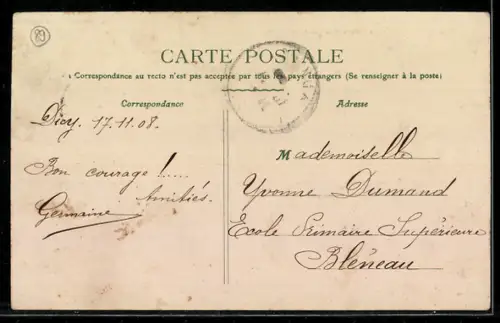 89
CARTE POSTALE
La Correspondance au recto n'est pas acceptée par tous les pays étrangers (Se renseigner à la poste)
Correspondance
Adresse
Dicy, 17.11.08.
Bon courage !.....
Amitiés.
Germaine
Mademoiselle
Yvonne Dumand
Ecole Primaire Supérieure
Bléneau